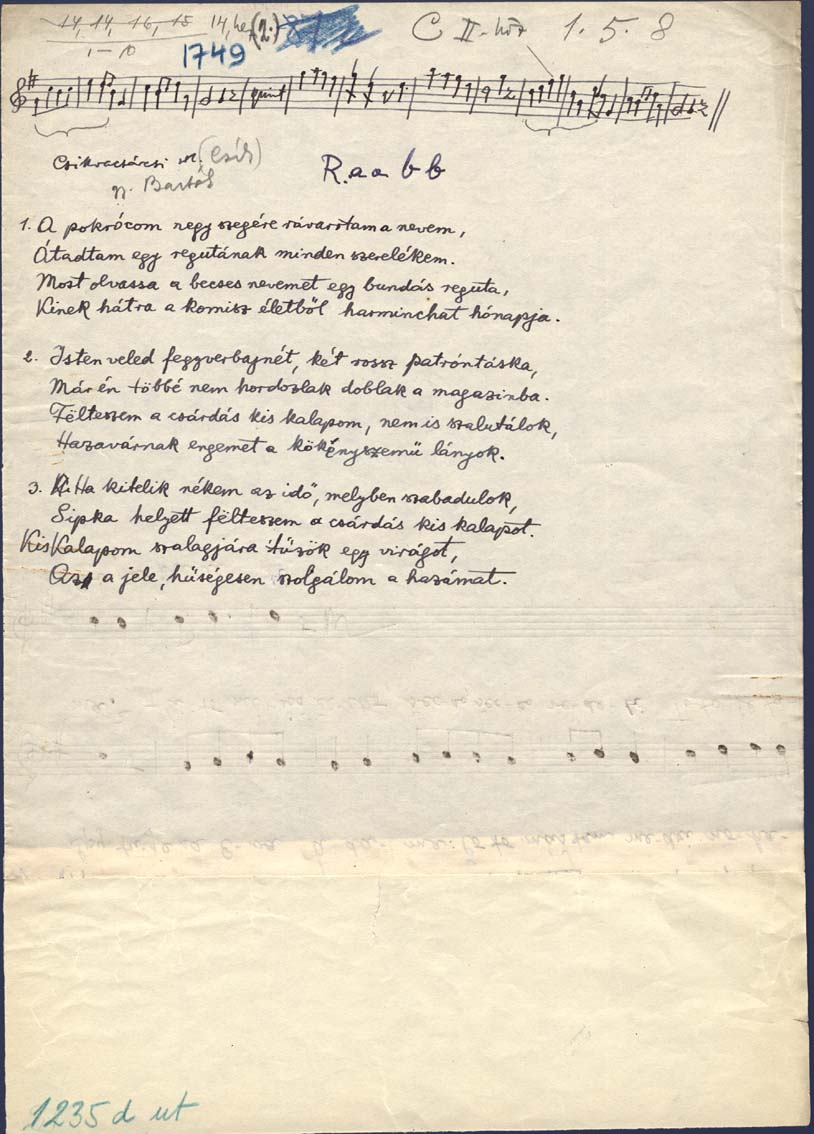 14, 14, 16, 15 14, he (2.)
1-10
1749
C II-höz 1. 5. 8
quint
Csikracsárcsi (Csík)
gy. Bartók
Raabb
1. A pokrócom négy szegére rávarrtam a nevem,
Átadtam egy regutának minden szerelékem.
Most olvassa a becses nevemet egy bundás reguta,
Kinek hátra a komisz életből harminchat hónapja.
2. Isten veled fegyverbajnét, két rossz patróntáska,
Már én többé nem hordozlak doblak a magazinba.
Félteszem a csárdás kis kalapom, nem is szalutálok,
Hazavárnak engemet a kökényszemű lányok.
3. Ha kitelik nékem az idő, melyben szabadulok,
Sipka helyett félteszem a csárdás kis kalapot.
Kis Kalapom szalagjára tűzök egy virágot,
Az a jele, hűségesen szolgálom a hazámat.
1235 d ut